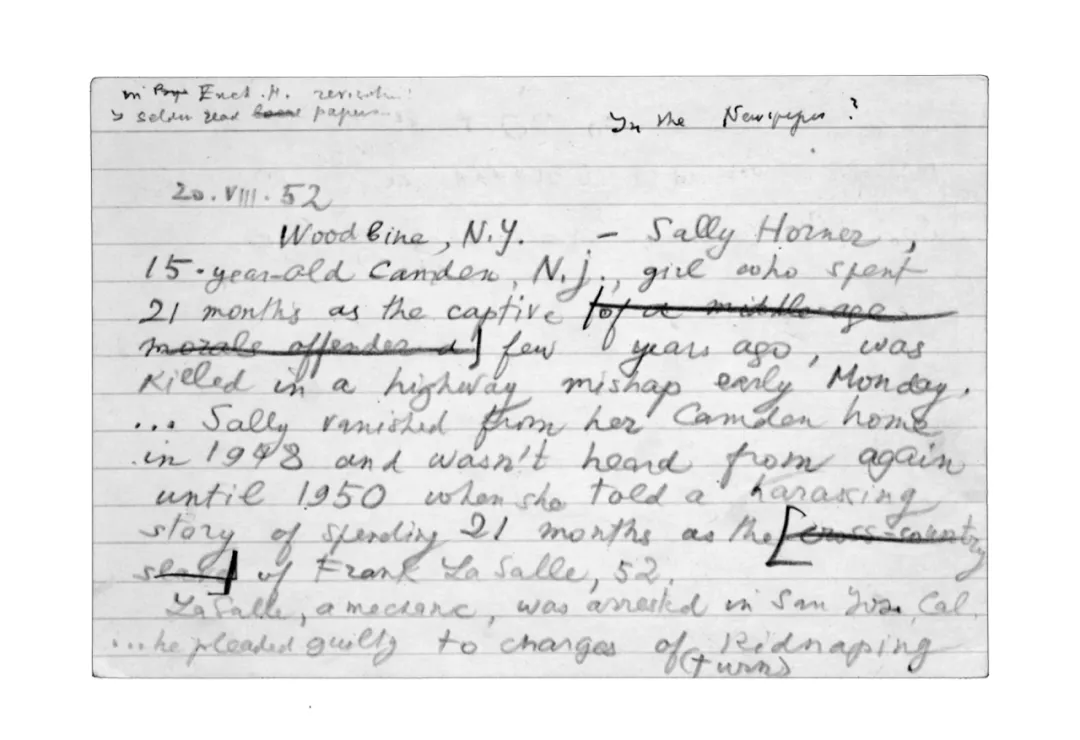 in Enct. H. revisited
→ seldom read papers
In the Newspaper?
20.VIII.52
Woodbine, N.Y. – Sally Horner,
15-year-old Camden, N.J., girl who spent
21 months as the captive [of a middle-age
morals offender a] few years ago, was
killed in a highway mishap early Monday.
... Sally vanished from her Camden home
in 1948 and wasn't heard from again
until 1950 when she told a harassing
story of spending 21 months as the [cross-country
slave] of Frank La Salle, 52.
LaSalle, a mechanic, was arrested in San Jose, Cal.
...he pleaded guilty to charges of kidnaping
(turn)